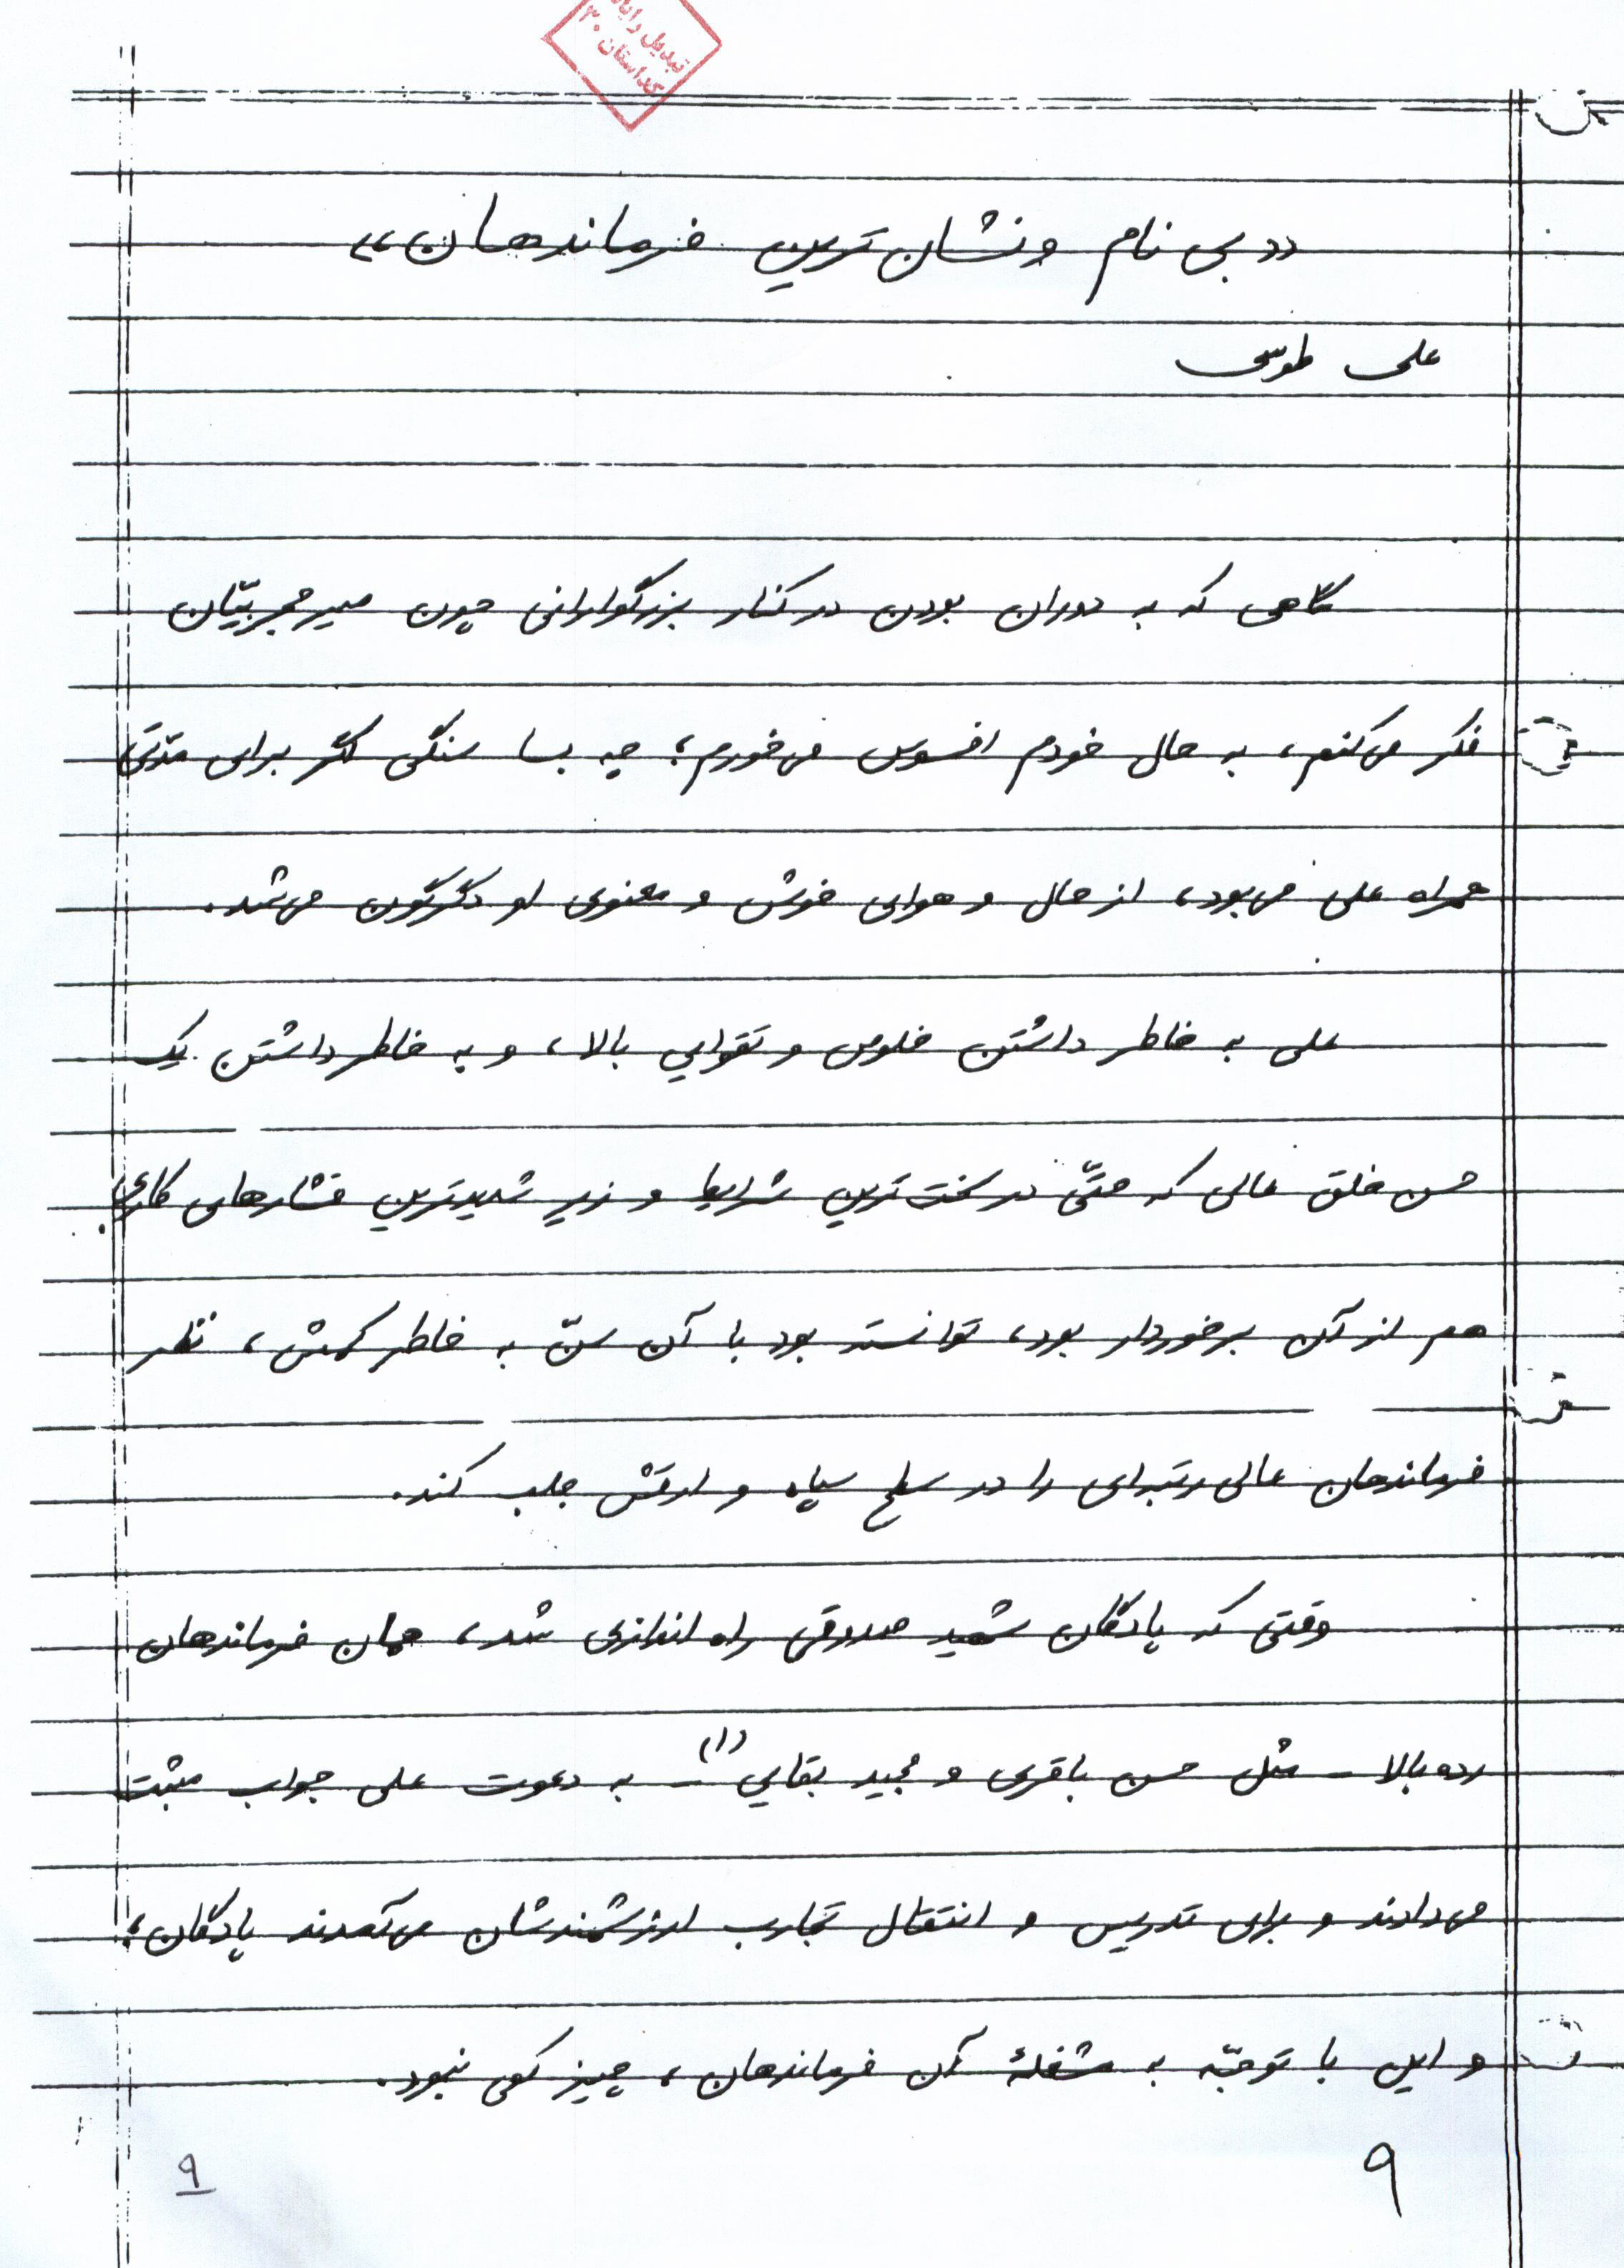 تبدیل رایا
کداستان ۳۰
«بی نام و نشان ترین فرماندهان»
علی طوسی
گاهی که به دوران بودن در کنار بزرگوارانی چون
فکر می‌کنم، به حال خودم افسوس می‌خورم؛ چه بسا سنگی اگر برای مدّتی
همراه علی می‌بود، از حال و هوای خوش و معنوی او دگرگون می‌شد.
علی به خاطر داشتن خلوص و تقوایی بالا، و به خاطر داشتن یک
حسن خلق عالی که حتّی در سخت‌ترین شرایط و زیر شدیدترین فشارهای کاری
هم از آن برخوردار بود، توانسته بود با آن سنّ به خاطر کمش، نظر
فرماندهان عالی رتبه‌ای را در سطح سپاه و ارتش جلب کند.
وقتی که پادگان شهید صدوقی راه اندازی شد، همان فرماندهان
رده بالا – مثل حسن باقری و مجید بقایی(۱) – به دعوت علی جواب مثبت
می‌دادند و برای تدریس و انتقال تجارب ارزشمندشان می‌آمدند پادگان؛
و این با توجّه به مشغلهٔ آن فرماندهان، چیز کمی نبود.
۹
۹